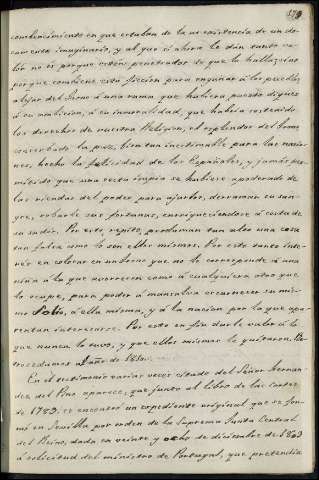 179
convencimiento en que estaban de la no existencia de un do-
cumento imaginario, y al que si ahora le dan tanto va-
lor no es porque esten penetrados de que lo halla sino
porque combiene esta ficcion para engañar á los pueblos
alejar del Trono á una rama que hubiera puesto diques
á su ambicion, á su inmoralidad, que habria sostenido
los derechos de nuestra Religion, el esplendor del Trono,
conserbado la paz, bien tan inestimable para las nacio-
nes, hecho la felicidad de los Españoles, y jamás per-
mitido que una secta impia se hubiese apoderado de
las riendas del poder para derramar su san-
gre, robarle sus fortunas, enriqueciendose á costa de
su sudor. Por esto, repito, proclaman tan alto una cosa
tan falsa como lo son ellos mismos. Por esto tanto inte-
rés en colocar en un trono que no le corresponde á una
niña á la que aborrecen como á cualquiera otro que
lo ocupe, para poder á mansalva escarnecer su mis-
mo Solio, á ella misma, y á la nacion por la que apa-
rentan interesarse. Por esto en fin darle valor á lo
que nunca lo tuvo, y que ellos mismos le quitaron. Re-
trocedamos al año de 1830.
En el testimonio varias veces citado del Señor Hernan-
dez del Pino aparece, que junto al libro de las Cortes
de 1789, se encontró un expediente original que se for-
mó en Sevilla por orden de la Suprema Junta Central
del Reino, dada en veinte y ocho de diciembre de 1809
á solicitud del ministro de Portugal, que pretendia